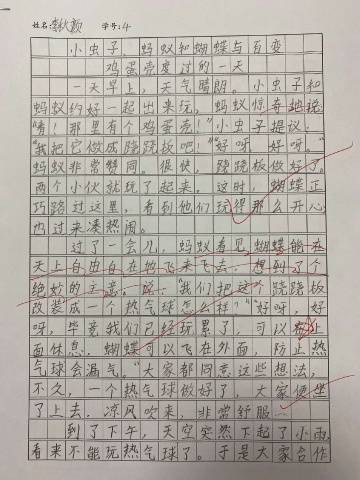 姓名: 学号:4
小虫子、蚂蚁和蝴蝶与百变
鸡蛋壳度过的一天
一天早上，天气晴朗。小虫子和
蚂蚁约好一起出来玩，蚂蚁惊奇地说
"看！那里有个鸡蛋壳！"小虫子提议：
"我把它做成跷跷板吧！"好呀，好呀。"
蚂蚁非常赞同。很快，跷跷板做好了。
两个小伙就玩了起来。这时，蝴蝶正
巧路过这里，看到他们玩得那么开心
也过来凑热闹。
过了一会儿，蚂蚁看见蝴蝶能在
天上自由自在地飞来飞去，想到了个
绝妙的主意。说："我们把这个跷跷板
改装成一个热气球怎么样？""好呀，好
呀，毕竟我们已经玩累了，可以在上
面休息，蝴蝶可以飞在外面，防止热
气球会漏气。"大家都同意这些想法，
不久，一个热气球做好了，大家便坐
了上去，凉风吹来，非常舒服…
到了下午，天空突然下起了小雨，
看来不能玩热气球了。于是大家合作